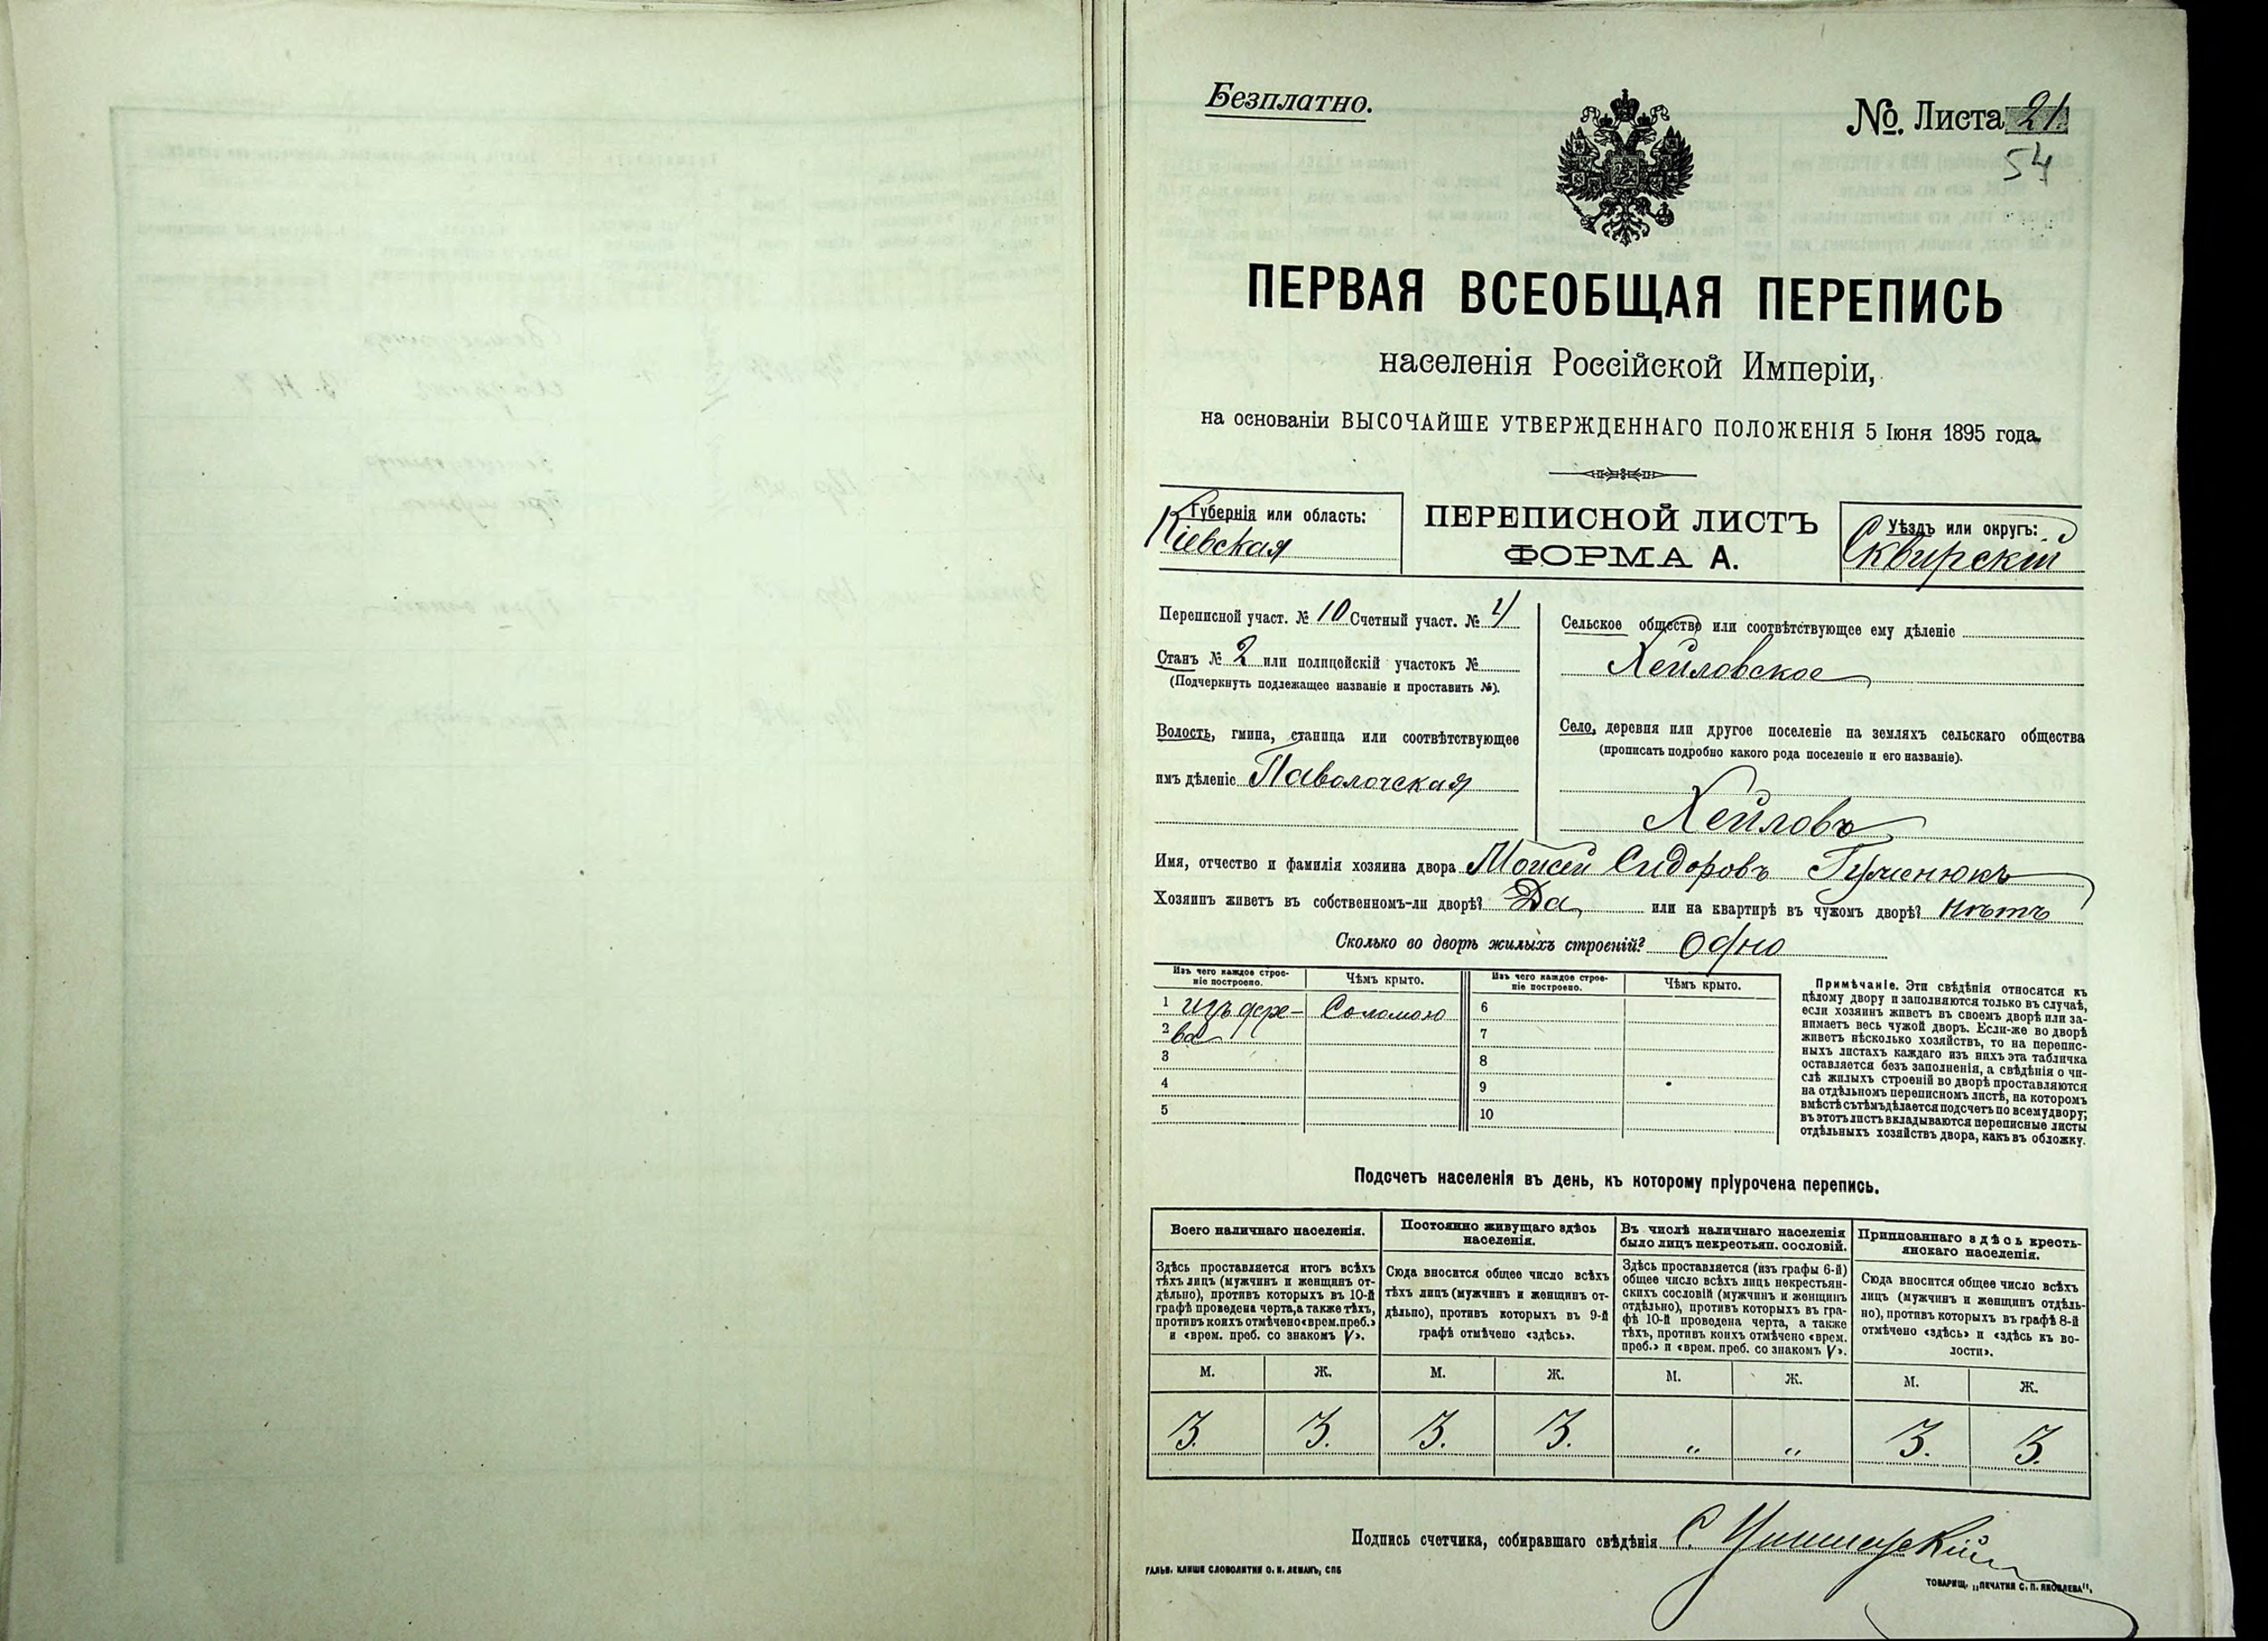 Безплатно.
№. Листа 21.
54
ПЕРВАЯ ВСЕОБЩАЯ ПЕРЕПИСЬ
населенія Россійской Имперіи,
на основаніи ВЫСОЧАЙШЕ УТВЕРЖДЕННАГО ПОЛОЖЕНІЯ 5 Іюня 1895 года.
Губернія или область:
Кіевская
ПЕРЕПИСНОЙ ЛИСТЪ
ФОРМА А.
Уѣздъ или округъ:
Сквирскій
Переписной участ. № 10 Счетный участ. № 4
Станъ № 2 или полицейскій участокъ №
(Подчеркнуть подлежащее названіе и проставить №).
Волость, гмина, станица или соотвѣтствующее
имъ дѣленіе Паволочская
Сельское общество или соотвѣтствующее ему дѣленіе
Хейловское
Село, деревня или другое поселеніе на земляхъ сельскаго общества
(прописать подробно какого рода поселеніе и его названіе).
Хейлово
Имя, отчество и фамилія хозяина двора Моисей Сидоровъ
Хозяинъ живетъ въ собственномъ-ли дворѣ? Да или на квартирѣ въ чужомъ дворѣ? Нѣтъ
Сколько во дворѣ жилыхъ строеній? Одно
Изъ чего каждое строе-
ніе построено.
Чѣмъ крыто.
Изъ чего каждое строе-
ніе построено.
Чѣмъ крыто.
1 изъ дере- Соломою 6
2 ва 7
3 8
4 9
5 10
Примѣчаніе. Эти свѣдѣнія относятся къ
цѣлому двору и заполняются только въ случаѣ,
если хозяинъ живетъ въ своемъ дворѣ или за-
нимаетъ весь чужой дворъ. Если-же во дворѣ
живетъ нѣсколько хозяйствъ, то на перепис-
ныхъ листахъ каждаго изъ нихъ эта табличка
оставляется безъ заполненія, а свѣдѣнія о чи-
слѣ жилыхъ строеній во дворѣ проставляются
на отдѣльномъ переписномъ листѣ, на которомъ
вмѣстѣ съ тѣмъ дѣлается подсчетъ по всему двору;
въ этотъ листъ вкладываются переписные листы
отдѣльныхъ хозяйствъ двора, какъ въ обложку.
Подсчетъ населенія въ день, къ которому пріурочена перепись.
Всего наличнаго населенія.
Здѣсь проставляется итогъ всѣхъ
тѣхъ лицъ (мужчинъ и женщинъ от-
дѣльно), противъ которыхъ въ 10-й
графѣ проведена черта, а также тѣхъ,
противъ коихъ отмѣчено «врем. преб.»
и «врем. преб. со знакомъ V».
Постоянно живущаго здѣсь
населенія.
Сюда вносится общее число всѣхъ
тѣхъ лицъ (мужчинъ и женщинъ от-
дѣльно), противъ которыхъ въ 9-й
графѣ отмѣчено «здѣсь».
Въ числѣ наличнаго населенія
было лицъ некрестьян. сословій.
Здѣсь проставляется (изъ графы 6-й)
общее число всѣхъ лицъ некрестьян-
скихъ сословій (мужчинъ и женщинъ
отдѣльно), противъ которыхъ въ гра-
фѣ 10-й проведена черта, а также
тѣхъ, противъ коихъ отмѣчено «врем.
преб.» и «врем. преб. со знакомъ V».
Приписаннаго здѣсь кресть-
янскаго населенія.
Сюда вносится общее число всѣхъ
лицъ (мужчинъ и женщинъ отдѣль-
но), противъ которыхъ въ графѣ 8-й
отмѣчено «здѣсь» и «здѣсь къ во-
лости».
М. Ж. М. Ж. М. Ж. М. Ж.
3. 3. 3. 3. " " 3. 3.
Подпись счетчика, собиравшаго свѣдѣнія С.
ГАЛЬВ. КЛИШЕ СЛОВОЛИТНИ О. И. ЛЕМАНЪ, СПБ
ТОВАРИЩ. „ПЕЧАТНЯ С. П. ЯКОВЛЕВА".